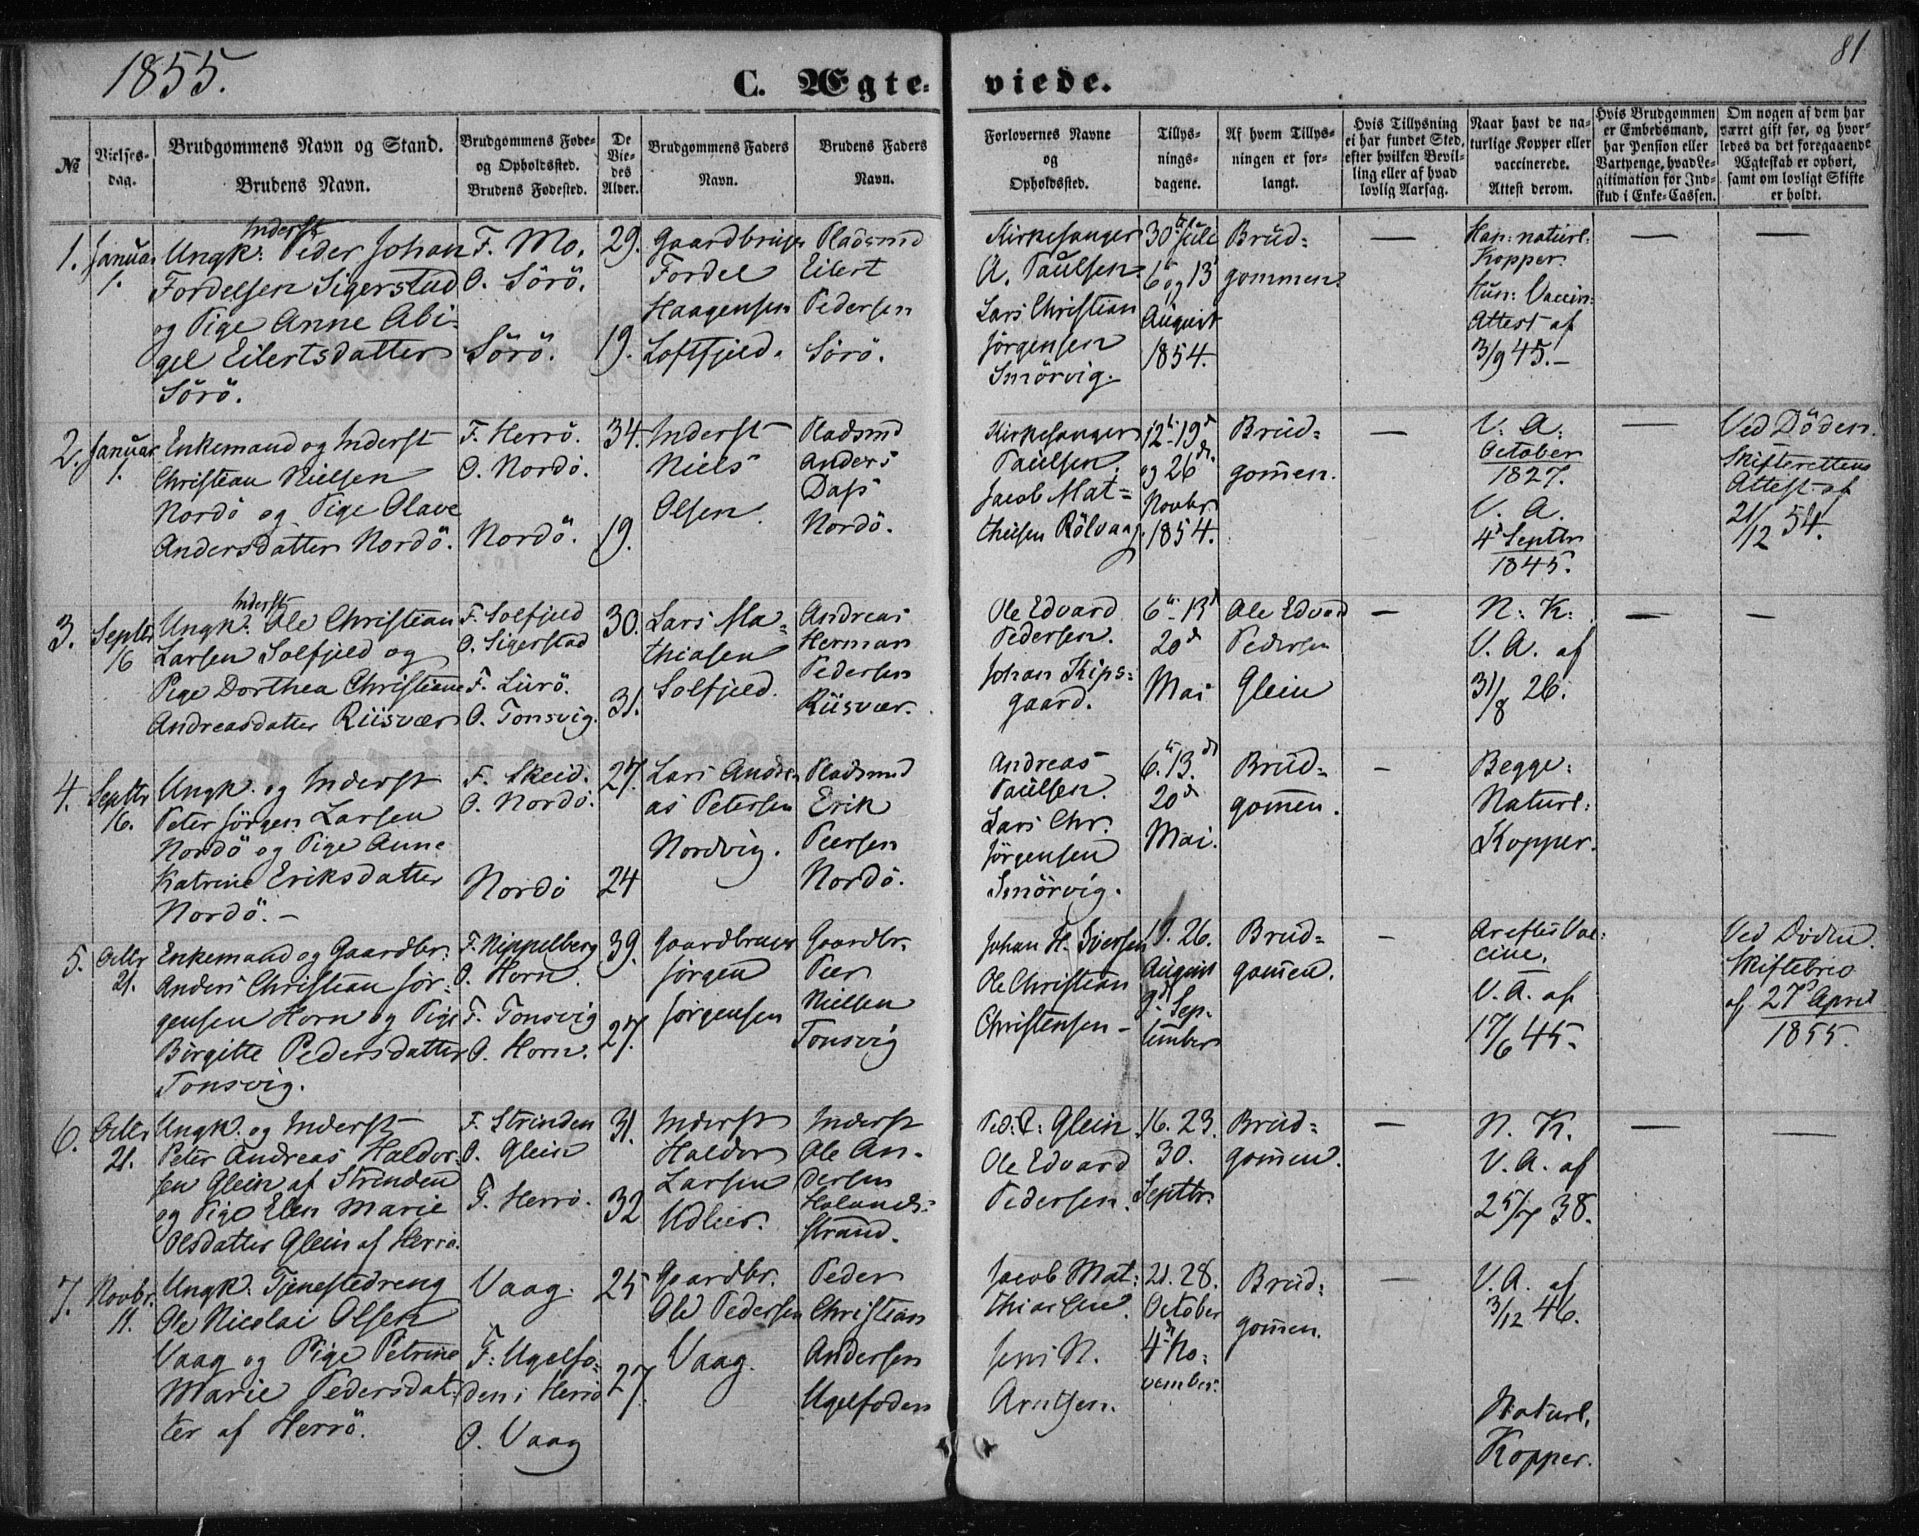 1855.
81
C. Ægte-
viede.
№
Vielses-
dag.
Brudgommens Navn og Stand.
Brudens Navn.
Brudgommens Føde-
og Opholdssted.
Brudens Fødested.
De
Vie-
des
Alder.
Brudgommens Faders
Navn.
Brudens Faders
Navn.
Forlovernes Navne
og
Opholdssted.
Tillys-
nings-
dagene.
Af hvem Tillys-
ningen er for-
langt.
Hvis Tillysning
ei har fundet Sted,
efter hvilken Bevil-
ling eller af hvad
lovlig Aarsag.
Naar havt de na-
turlige Kopper eller
vaccinerede.
Attest derom.
Hvis Brudgommen
er Embedsmand,
har Pension eller
Vartpenge, hvad Le-
gitimation for Ind-
skud i Enke-Cassen.
Om nogen af dem har
været gift før, og hvor-
ledes da det foregaaende
Ægteskab er ophørt,
samt om lovligt Skifte
er holdt.
1.
Januar
1.
Inderst
Ungk: Peder Johan
Fordelsen Sigerstad
og Pige Anne Abi-
gel Eilertsdatter
Sörö.
F. Mo.
O. Sörö.
Sörö.
29.
19.
Gaardbruger
Fordel
Haagensen
Loftfjeld.
Pladsmd
Eilert
Pedersen
Sörö.
Kirkesanger
A. Paulsen.
Lars Christian
Jörgensen
Smörvig.
30te Juli
6te og 13
August
1854.
Brud-
gommen.
—
Han: naturl:
Kopper.
Hun: Vaccin:
Attest af
3/9 45.—
—
—
2.
Januar
1.
Enkemand og Inderst
Christian Nielsen
Nordö og Pige Olave
Andersdatter Nordö.
F. Herrö.
O. Nordö.
Nordö.
34.
19.
Inderst
Niels
Olsen.
Pladsmd
Anders
Dass
Nordö.
Kirkesanger
Paulsen.
Jacob Mat-
thisen Rölvaag.
12te 19de
og 26de
Novbr
1854.
Brud-
gomen.
—
V. A.
October
1827.
V. A.
4de Septbr
1845.
—
Ved Döden.
Skifterettens
Attest af
21/12 54.
3.
Septbr
16
Inderst
Ungk: Ole Christian
Larsen Solfjeld og
Pige Dorthea Christiane
Andreasdatter Riisvær
F. Solfjeld
O. Sigerstad
F. Lurö.
O. Tonsvig.
30.
31.
Lars Ma-
thiasen
Solfjeld.
Andreas
Herman
Pedersen
Riisvær.
Ole Edvard
Pedersen.
Johan Kips-
gaard.
6te 13de
20de
Mai
Ole Edvard
Pedersen
Glein
—
N: K:
V. A. af
31/8 26.
—
—
4.
Septbr
16.
Ungk. og Inderst
Peter Jörgen Larsen
Nordö og Pige Anne
Katrine Eriksdatter
Nordö.—
F. Skeid.
O. Nordö.
Nordö
27.
24
Lars Andre-
as Petersen
Nordvig.
Pladsmd
Erik
Peersen
Nordö.
Andreas
Paulsen.
Lars Chr.
Jörgensen
Smörvig.
6te 13de
20de
Mai.
Brud-
gomen.
—
Begge:
Naturl:
Kopper.
5.
Octbr
21.
Enkemand og Gaardbr.
Anders Christian Jör-
gensen Horn og Pige
Birgitte Pedersdatter
Tonsvig.
F. Nippelberg
O. Horn.
F. Tonsvig
O. Horn.
39.
27.
Gaardbruger
Jörgen
Jörgensen
Gaardbr.
Peer
Nielsen
Tonsvig
Johan H. Iversen
Ole Christian
Christensen —
19. 26.
August
9de Sep-
tember
Brud-
gomen.
—
Ar efter Vac-
cine.
V. A. af
17/6 45.
Ved Döden.
Skiftebrev
af 27de April
1855.
6.
Octbr
21.
Ungk. og Inderst
Peter Andreas Haldor-
sen Glein af Strinden
og Pige Elen Marie
Olsdatter Glein af Herrö.
F. Strinden
O. Glein
F. Herrö.
31.
32
Inderst
Haldor
Larsen
Udlier.
Inderst
Ole An-
dersen
Holands-
strand.
Ped: P: Glein
Ole Edvard
Pedersen.
16. 23.
30.
Septbr.
Brud-
gomen.
—
N. K.
V. A. af
25/7 38.
—
—
7.
Novbr.
11.
Ungk. Tjenestedreng
Ole Nicolai Olsen
Vaag og Pige Petrine
Marie Pedersdat-
ter af Herrö.
Vaag.
F: Ugelfo-
den i Herrö
O. Vaag
25
27.
Gaardbr.
Ole Pedersen
Vaag.
Peder
Christian
Andersen
Ugelfoden
Jacob Mat-
thiasen.
Jens N.
Arntsen.
21. 28.
October
4de No-
vember.
Brud-
gomen.
—
V. A. af
3/12 46.
Naturl.
Kopper.